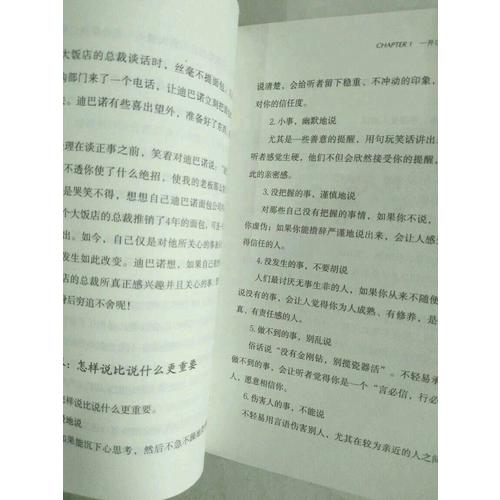 大饭店的总裁谈话时，丝毫不提面包
部门来了一个电话，让迪巴诺立刻把
。迪巴诺有些喜出望外，准备好了东
理在谈正事之前，笑着对迪巴诺说：
不透你使了什么绝招，使我的老板那么
是哭笑不得，想想自己迪巴诺面包公司
个大饭店的总裁推销了4年的面包，可
出。如今，自己仅是对他所关心的事表
发生如此改变。迪巴诺想，如果自己
店的总裁所真正感兴趣并且关心的事，
身后穷追不舍呢！
：怎样说比说什么更重要
怎样说比说什么更重要。
地说
如果能沉下心思考，然后不急不躁地
CHAPTER 1 一开
说清楚，会给听者留下稳重、不冲动的印象，
对你的信任度。
2.小事，幽默地说
尤其是一些善意的提醒，用句玩笑话讲出
听者感觉生硬，他们不但会欣然接受你的提醒，
此的亲密感。
3.没把握的事，谨慎地说
对那些自己没有把握的事情，如果你不说，
你虚伪；如果你能措辞严谨地说出来，会让人感
得信任的人。
4.没发生的事，不要胡说
人们最讨厌无事生非的人，如果你从来不随便
说没有的事，会让人觉得你为人成熟、有修养，是
真、有责任感的人。
5.做不到的事，别乱说
俗话说“没有金刚钻，别揽瓷器活”。不轻易承
做不到的事，会让听者觉得你是一个“言必信，行必
人，愿意相信你。
6.伤害人的事，不能说
不轻易用言语伤害别人，尤其在较为亲近的人之间